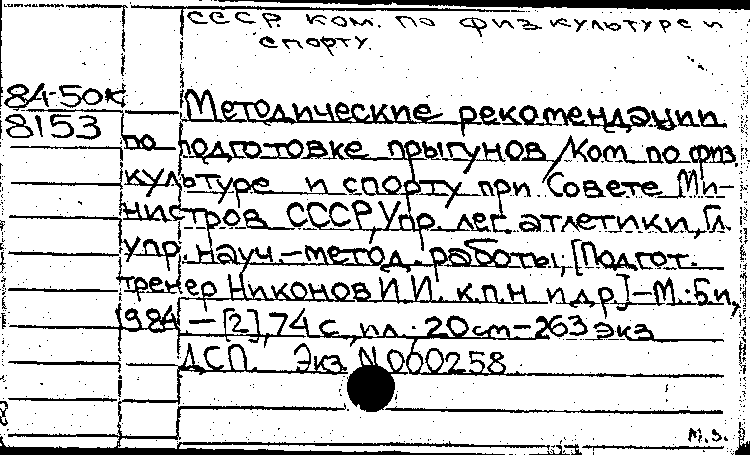 СССР. Ком. по физ. культуре и
спорту.
84-50к
8153
Методические рекомендации
по подготовке прыгунов / Ком. по физ
культуре и спорту при Совете Ми-
нистров СССР, Упр. лег. атлетики, Гл.
упр. науч.-метод. работы; [Подгот.
тренер Никонов И.И. к.п.н. и др.]-М.: Б.и,
1984. - [2], 74 с, ил.; 20 см - 263 экз
ДСП. Экз. N000258
м.з.